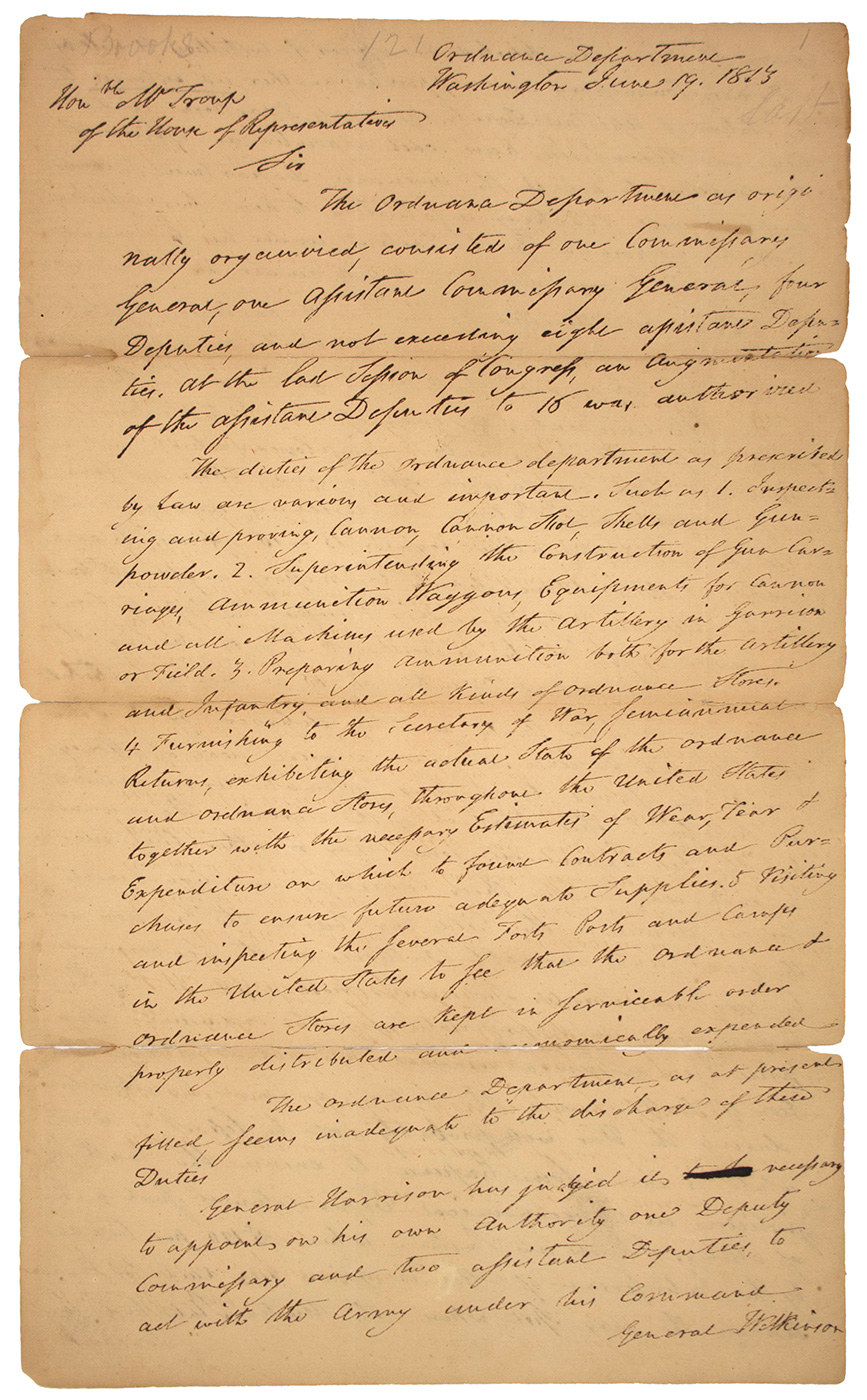 Ordnance Department
Washington June 19. 1813
Honble Mr Troup
of the House of Representatives
Sir
The Ordnance Department as origi
nally organized, consisted of one Commissary
General, one Assistant Commissary General, four
Deputies, and not exceeding eight assistant Depu=
ties. At the last Session of Congress, an augmentatio
of the assistant Deputies to 16 was authorized
The duties of the ordnance department as prescribed
by Law are various and important. Such as 1. Inspect=
ing and proving, Cannon, Cannon Shot, Shells and Gun=
powder. 2. Superintending the Construction of Gun Car=
riages, Ammunition Waggons, Equipments for Cannon
and all Machines used by the Artillery in Garrison
or Field. 3. Preparing Ammunition both for the Artillery
and Infantry, and all Kinds of ordnance Stores.
4 Furnishing to the Secretary of War, semiannual
Returns, exhibiting the actual State of the ordnance
and ordnance Stores, throughout the United States
together with the necessary Estimates of Wear, Tear &
Expenditure on which to found Contracts and Pur=
chases to ensure future adequate Supplies. 5 Visiting
and inspecting the several Forts Posts and Camps
in the United States to see that the ordnance &
ordnance Stores are kept in serviceable order
properly distributed and onomically expended
The ordnance Department, as at present
filled, seems inadequate to the discharge of these
Duties
General Harrison has judged it necessary
to appoint on his own Authority one Deputy
Commissary and two assistant Deputies, to
act with the Army under his Command
General Wilkinson